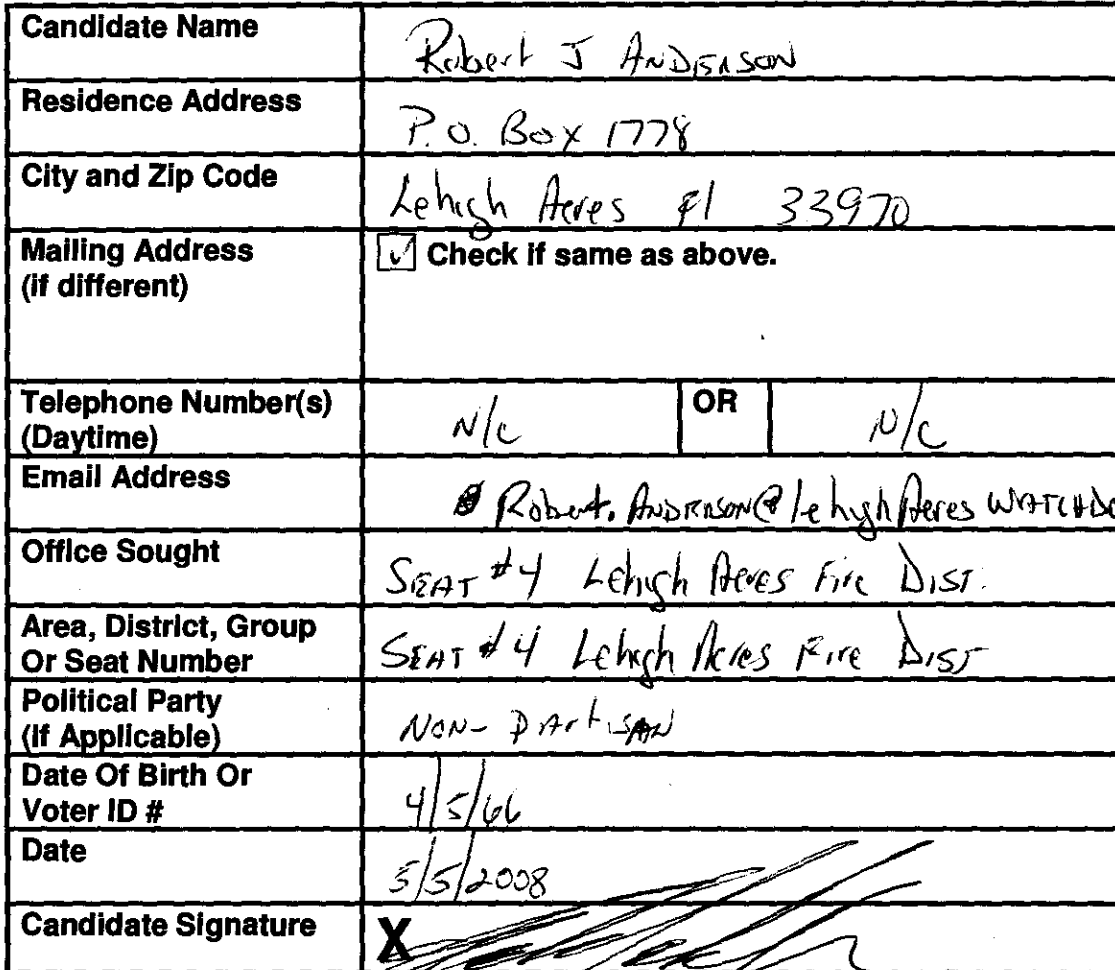 Candidate Name Robert J ANDERSON
Residence Address P.O. Box 1778
City and Zip Code Lehigh Acres Fl 33970
Mailing Address ☑ Check if same as above.
(if different)
Telephone Number(s) N/C OR N/C
(Daytime)
Email Address Robert.ANDERSON@lehighAcresWATCHDO
Office Sought SEAT #4 Lehigh Acres Fire DIST.
Area, District, Group
Or Seat Number SEAT #4 Lehigh Acres Fire DIST
Political Party
(If Applicable) NON-PArtisAN
Date Of Birth Or
Voter ID # 4/5/66
Date 5/5/2008
Candidate Signature X